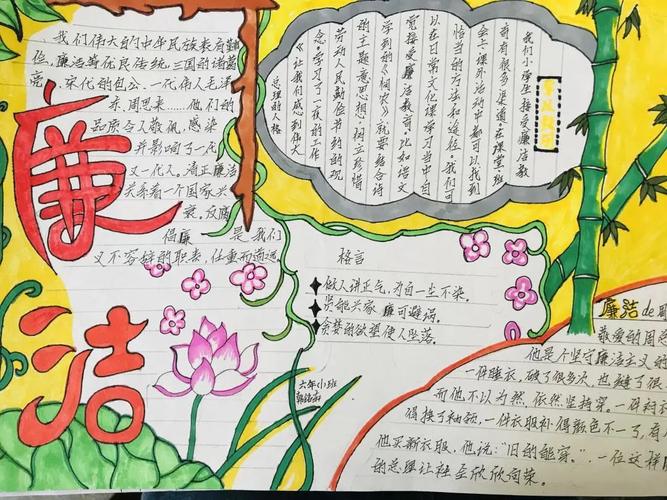 廉洁
我们伟大的中华民族素有勤
俭,廉洁等优良传统,三国的诸葛
亮,宋代的包公,一代伟人毛泽
东,周恩来……他们的
品质令人敬佩,感染
并影响了一代
又一代人。清正廉洁
关系着一个国家兴
衰。反腐
倡廉 是我们
义不容辞的职责,任重而道远
我们小学生接受廉洁教
育有很多渠道。在课堂、班
会、课外活动中都可以找到
恰当的方法和途径。我们可
以在日常文化课学习当中自
觉接受廉洁教育,比如语文
学到的《悯农》就要结合诗
的主题意思想,树立珍惜
劳动人民勤俭节约的观
念。学习了一夜的工作
《让我们感到伟大
总理的人格
格言
做人讲正气,为自一生不染。
贤能兴家 廉可避祸。
贪婪的欲望使人坠落。
六年(1)班
廉洁de
敬爱的周恩
他是个坚守廉洁主义的
一件睡衣,破了很多次,也
而他不以为然,依然坚持穿。一件衬
得换了袖领,一件衣服补得颜色不一了,有
他买新衣服,他说:"旧的能穿。"一位这样
的总理让社会欣欣向荣。